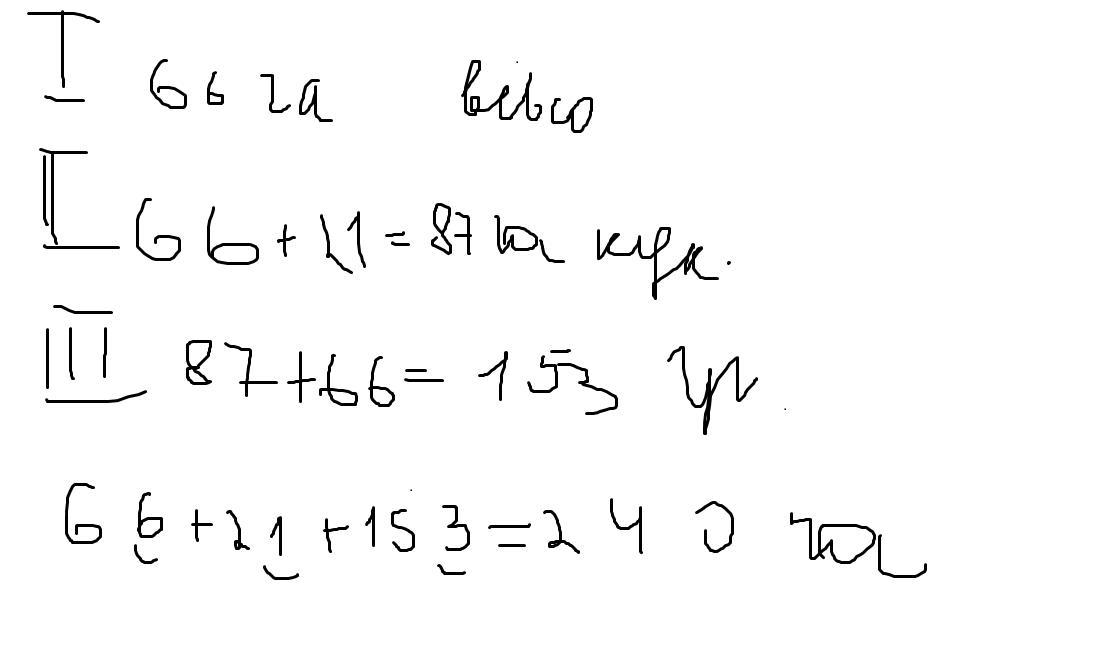 I 66 га овёс
II 66 + 21 = 87 га кук.
III 87+66 = 153 гр
66+21+153=240 га